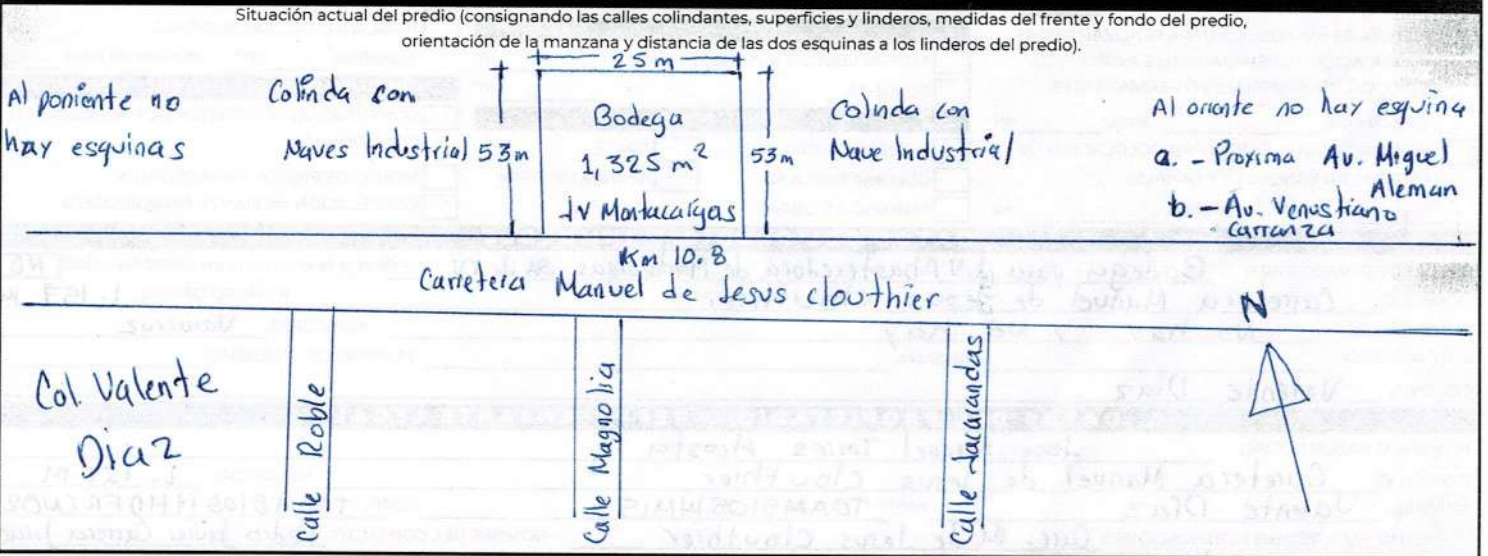 Situación actual del predio (consignando las calles colindantes, superficies y linderos, medidas del frente y fondo del predio,
orientación de la manzana y distancia de las dos esquinas a los linderos del predio).
25m
Al poniente no
hay esquinas
Colinda con
Naves Industrial
53m
Bodega
1,325 m²
JV Montacargas
53m
Colnda con
Nave Industrial
Al oriente no hay esquina
a. - Proxima Av. Miguel
Aleman
b. - Av. Venustiano
Carranza
Km 10.8
Carretera Manuel de Jesus clouthier
N
Col. Valente
Diaz
Calle Roble
Calle Magnolia
Calle Jacarandas